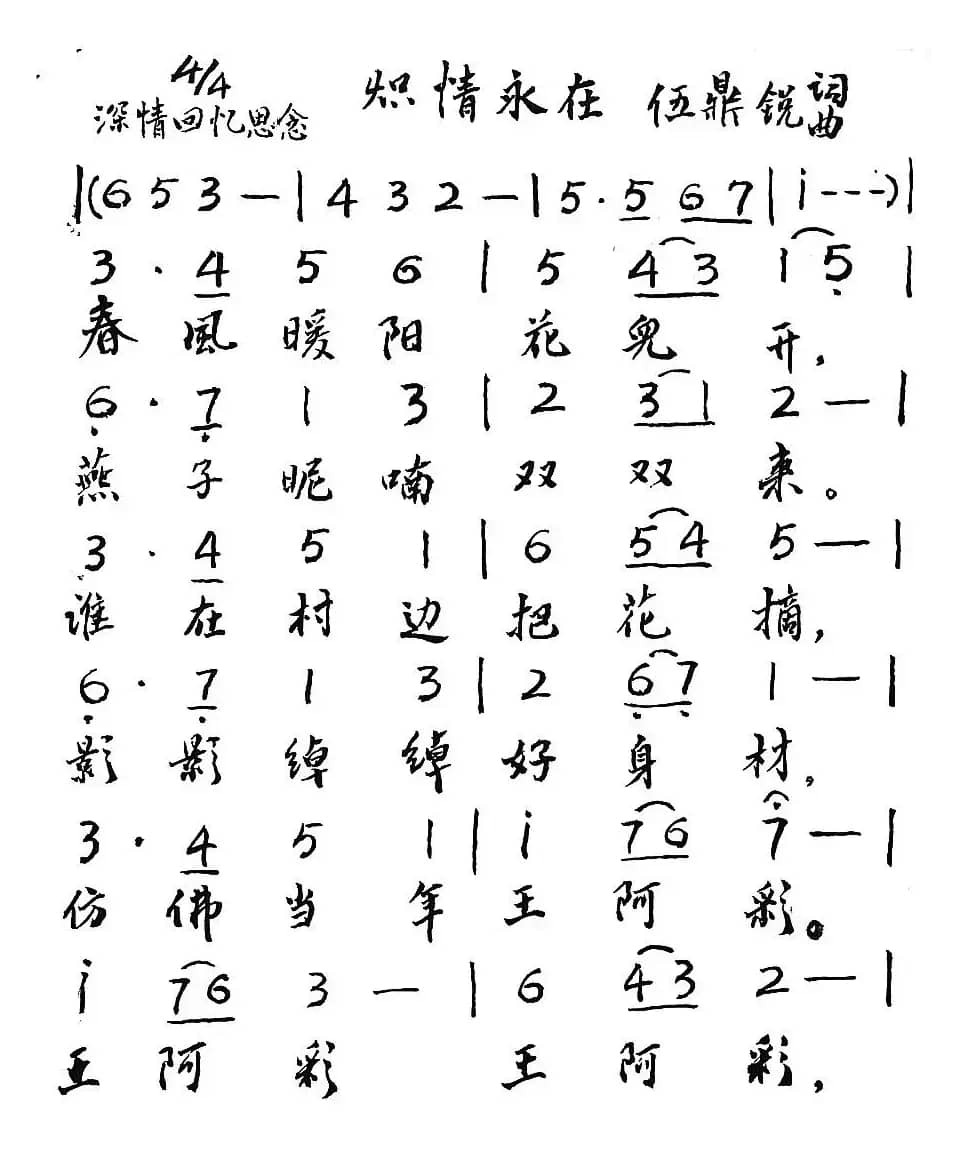 4/4 炽情永在 伍鼎锐 词曲
深情回忆思念
|(6 5 3 — | 4 3 2 — | 5 · 5 6 7 | i - - -)|
3 · 4 5 6 | 5 4 3 1 5 |
春 風 暖 阳 花 儿 开,
6 · 7 1 3 | 2 3 1 2 — |
燕 子 昵 喃 双 双 来。
3 · 4 5 1 | 6 5 4 5 — |
谁 在 村 边 把 花 摘,
6 · 7 1 3 | 2 6 7 1 — |
影 影 绰 绰 好 身 材,
3 · 4 5 1 | i 7 6 7 — |
仿 佛 当 年 王 阿 彩。
i 7 6 3 — | 6 4 3 2 — |
王 阿 彩 王 阿 彩,